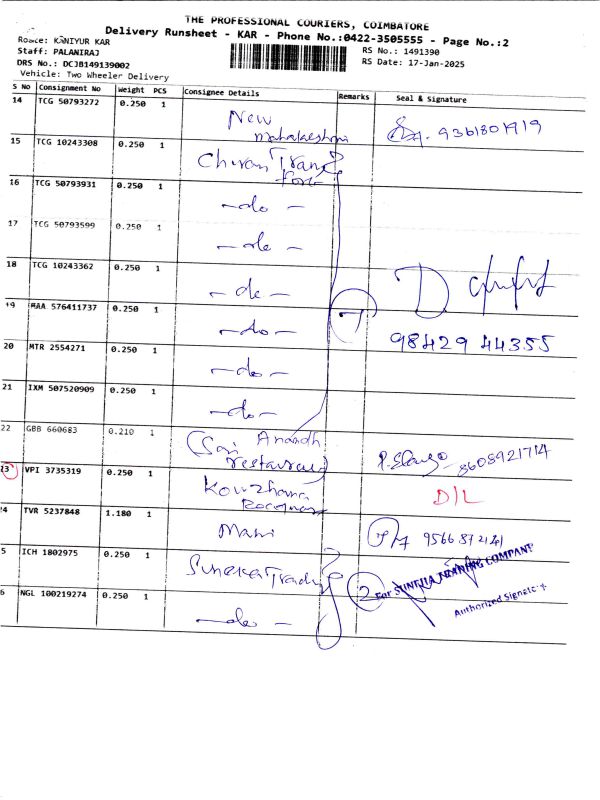 THE PROFESSIONAL COURIERS, COIMBATORE
Delivery Runsheet - KAR - Phone No.:0422-3505555 - Page No.:2
Route: KANIYUR KAR
RS No.: 1491390
Staff: PALANIRAJ
RS Date: 17-Jan-2025
DRS No.: DCJB149139002
Vehicle: Two Wheeler Delivery
S No Consignment No Weight PCS Consignee Details Remarks Seal & Signature
14 TCG 50793272 0.250 1 New 9361801919
15 TCG 10243308 0.250 1 Chiran Trans
Port
16 TCG 50793931 0.250 1 -do-
17 TCG 50793599 0.250 1 -do-
18 TCG 10243362 0.250 1 -do-
19 MAA 576411737 0.250 1 -do- 7
98429 44355
20 MTR 2554271 0.250 1 -do-
21 IXM 507520909 0.250 1 -do-
22 GBB 660683 0.210 1 (Sri Anandh
restaurent) 8608921714
23 VPI 3735319 0.250 1 D/L
24 TVR 5237848 1.180 1 Mani
25 ICH 1802975 0.250 1 Trading 2 For TRADING COMPANY
Authorized Signatory
26 NGL 100219274 0.250 1 -do-